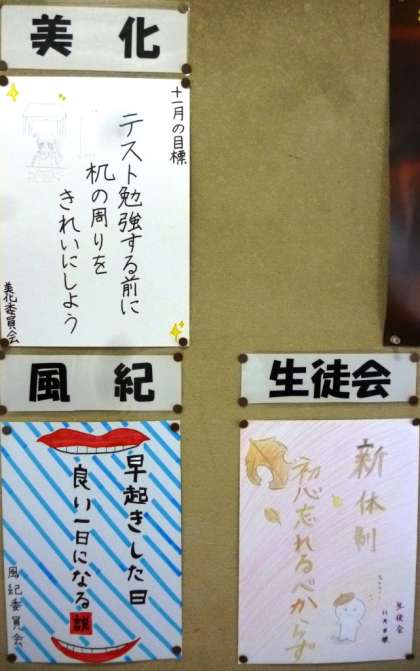 美化
十一月の目標
テスト勉強する前に
机の周りを
きれいにしよう
美化委員会
風紀
早起きした日
良い一日になる説
風紀委員会
生徒会
新体制
初心忘れるべからず
生徒会